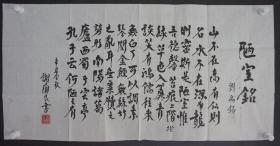 陋室銘
劉禹錫
山不在高有仙則
名水不在深有龍
則靈斯是陋室惟
吾德馨苔痕上階
綠草色入簾青
談笑有鴻儒往來
無白丁可以調素
琴閱金經無絲竹
之亂耳無案牘之
勞形南陽諸葛
廬西蜀子雲亭
孔子云何陋之有